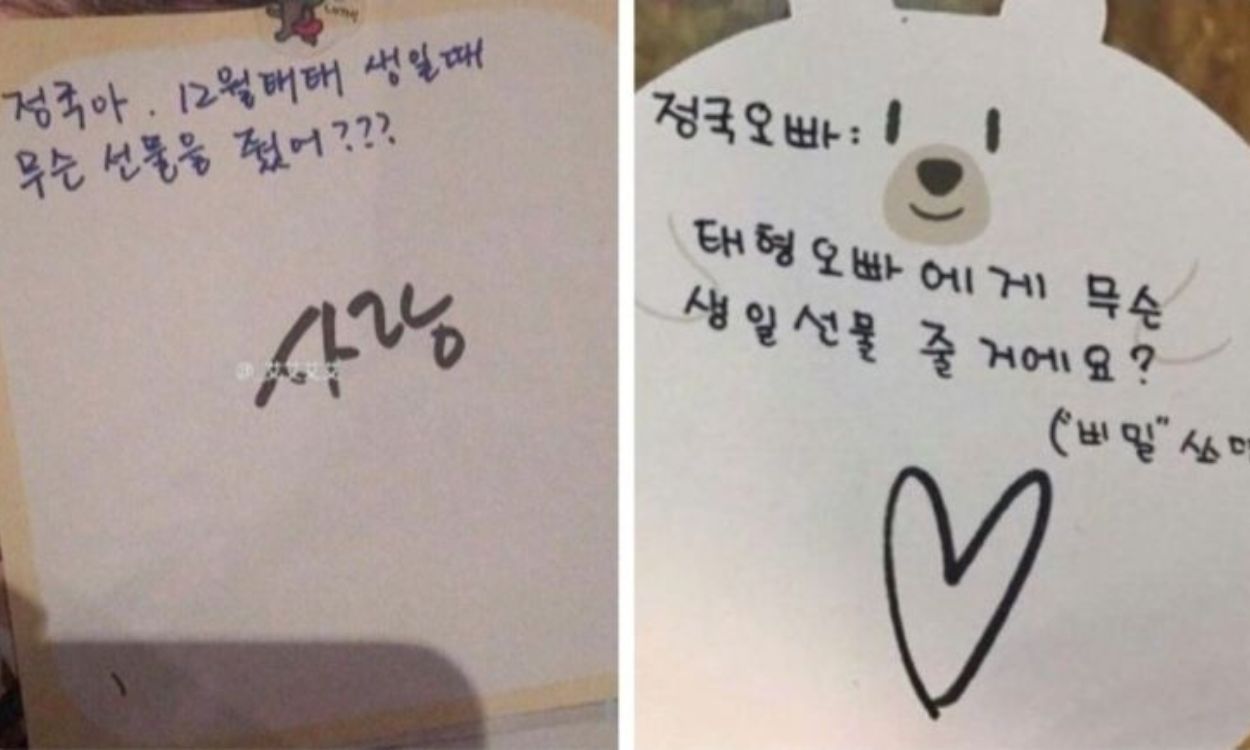 정국아. 12월태태 생일때
무슨 선물을 줬어???
사랑
정국오빠:
태형오빠에게 무슨
생일선물 줄거에요?
("비밀" 쓰